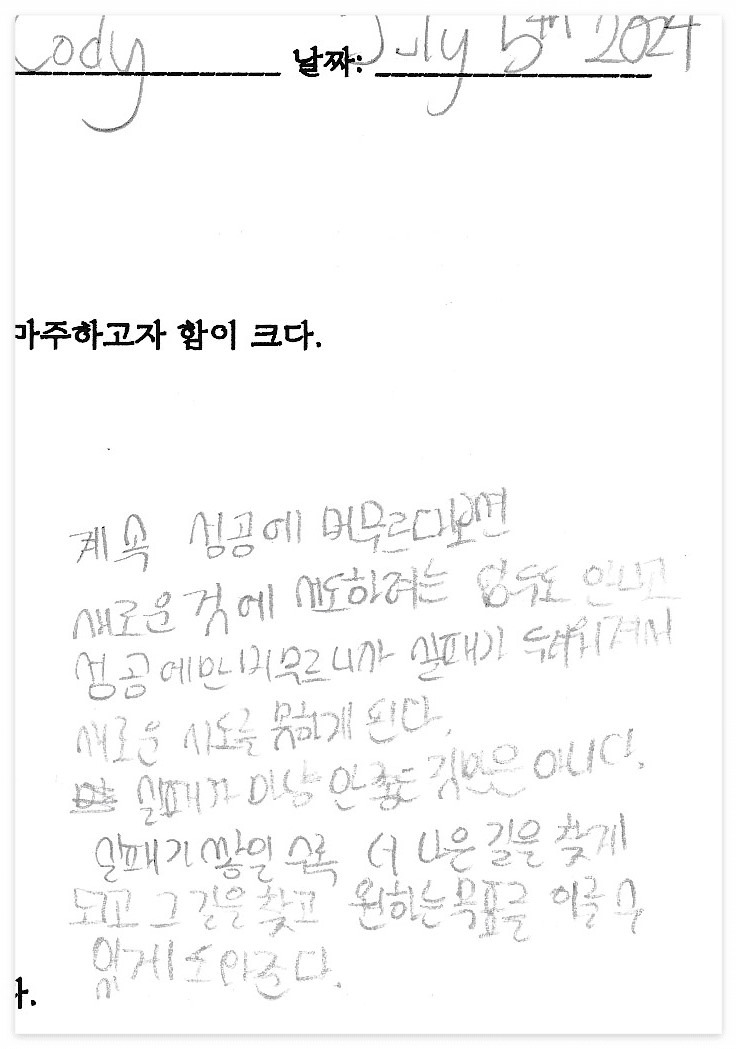 Cody 날짜: July 5th 2024
마주하고자 함이 크다.
계속 성공에 머무르다보면
새로운 것에 시도하려는 엄두도 안나고
성공에만 머무르니까 실패가 두려워져서
새로운 시도를 못하게 된다.
실패가 마냥 안좋은 것만은 아니다.
실패가 쌓일 수록 더 나은 길을 찾게
되고 그 길을 찾고 원하는 목표를 이룰 수
있게 도와준다.